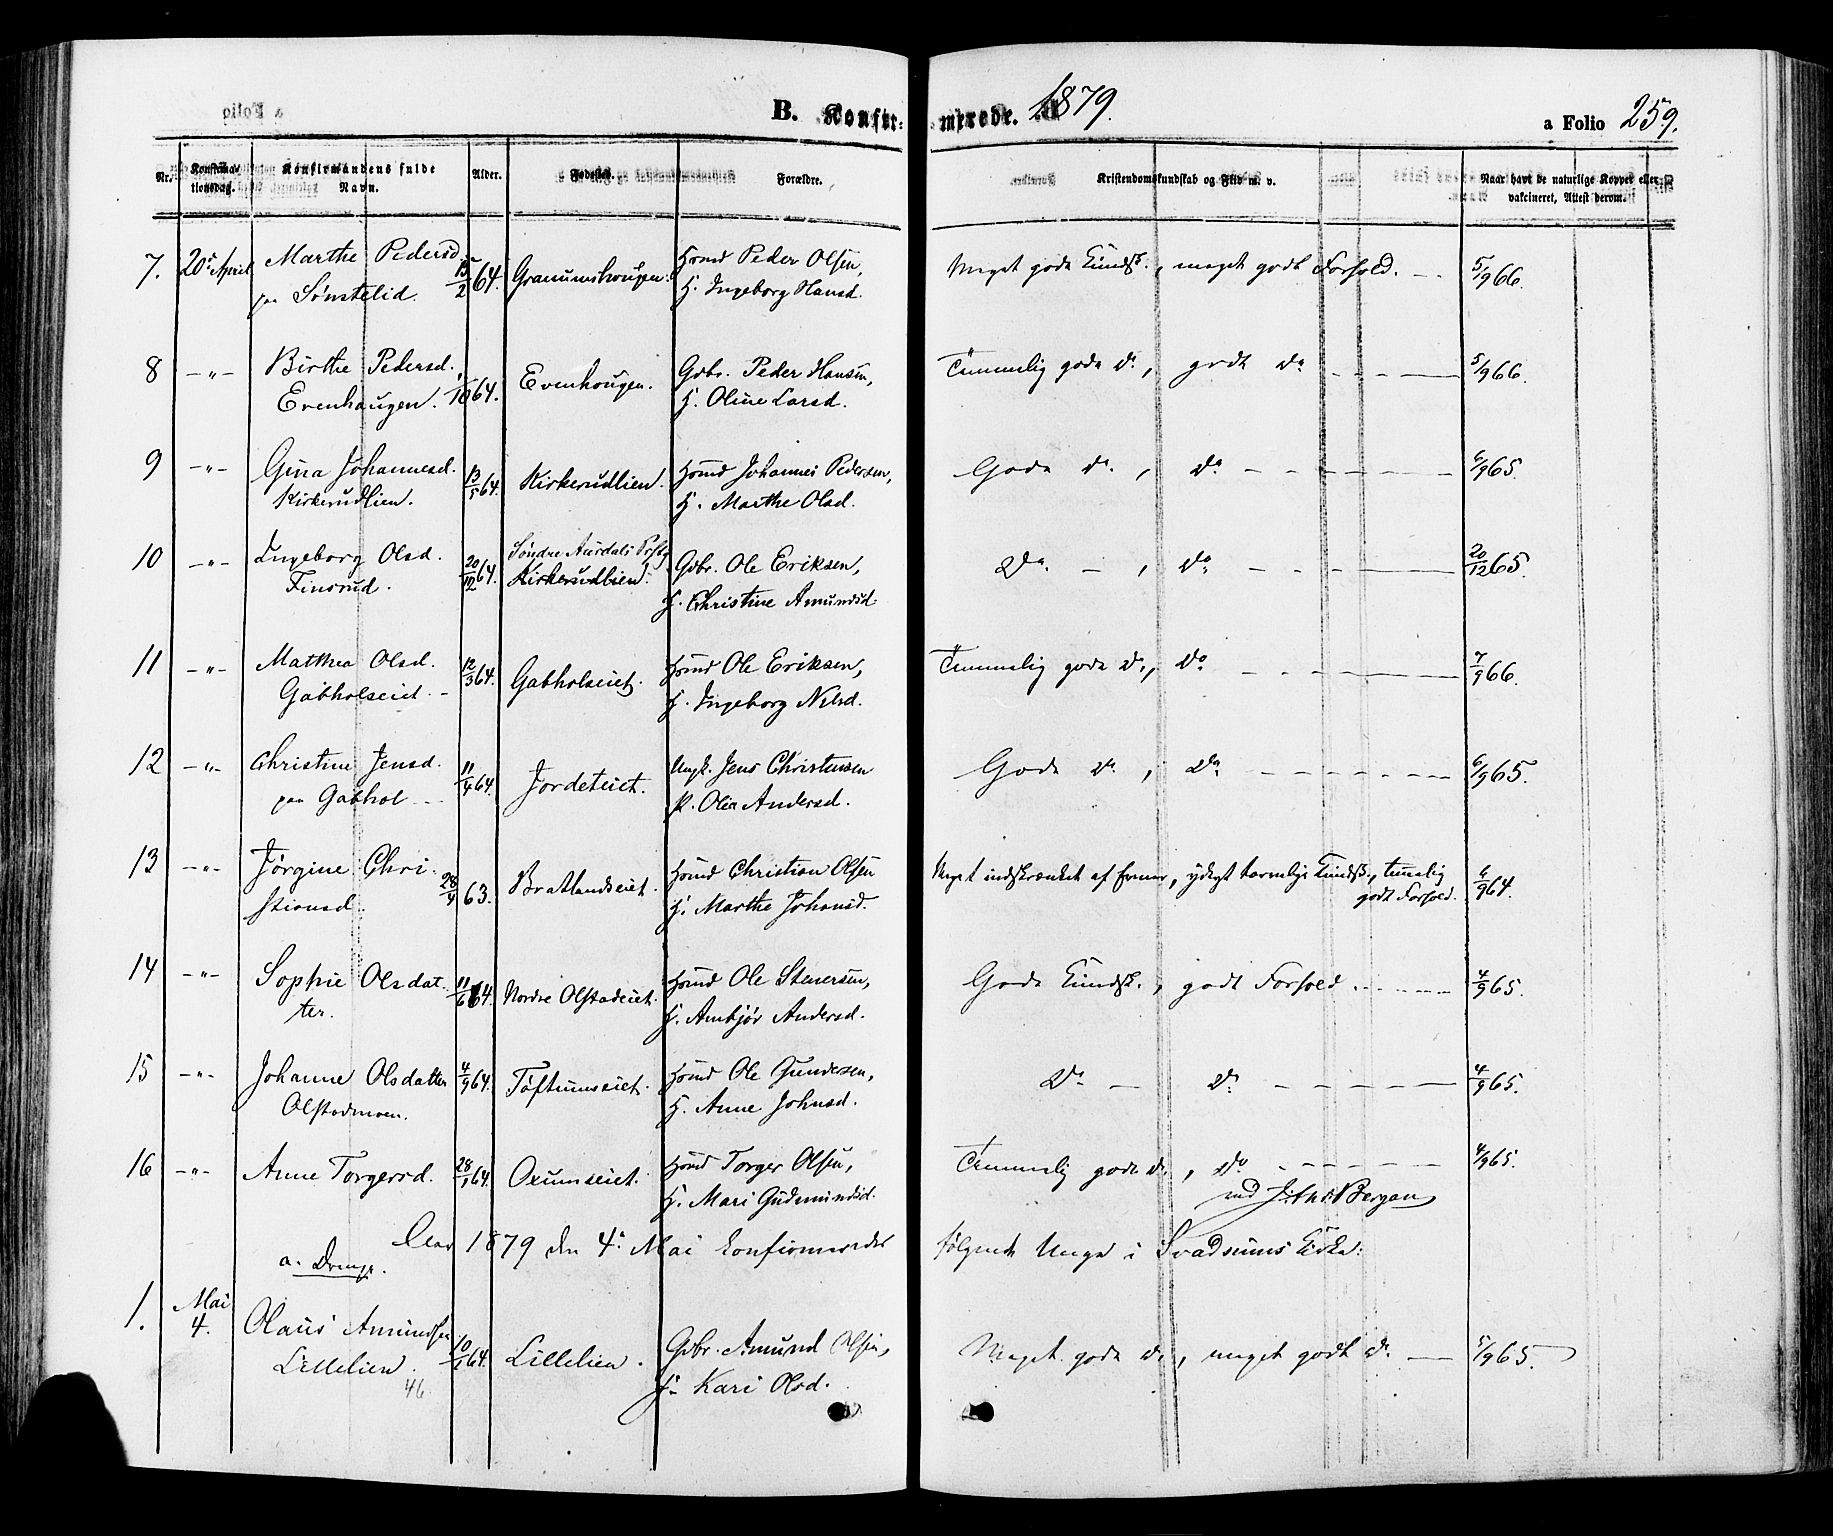 B. Konfirmerede. 1879.
a Folio 259.
Nr. Konfirmationsdag. Konfirmandens fulde Navn. Alder. Fødested. Forældre. Kristendomskundskab og Flid m. v. Naar havt de naturlige Kopper eller vakcineret, Attest derom.
7. 20de April Marthe Pedersd. 15/2 64. Granumshougen. Hsmd Peder Olsen, Meget gode Kundsk., meget godt Forhold. 5/9 66.
paa Sønstelid. H. Ingeborg Hansd.
8 -"- Birthe Pedersd. /10 64. Evenhougen. Gdbr. Peder Hansen, Temmelig gode Do, godt Do 5/9 66.
Evenhaugen. H. Oline Larsd.
9 -"- Gina Johannesd. 13/5 64. Kirkerudlien. Hsmd Johannes Pedersen, Gode Do, Do 6/9 65.
Kirkerudlien. H. Marthe Olsd.
10 -"- Ingeborg Olsd. 20/12 64. Søndre Aurdals Prstg. Gdbr. Ole Eriksen, Do - , Do 20/12 65.
Finsrud. Kirkerudlien. H. Christine Amundsd
11 -"- Mathea Olsd. 12/3 64. Gabholseiet. Hsmd Ole Eriksen, Temmelig gode Do, Do 7/9 66.
Gabholseiet. H. Ingeborg Nilsd.
12 -"- Christine Jensd. 11/4 64. Jordeteiet. Ungk. Jens Christensen Gode Do, Do 6/9 65.
paa Gabhol P. Olia Andersd.
13 -"- Jørgine Chri- 28/4 63. Bratlandseiet. Hsmd Christian Olsen Meget indskrænket af Evner, ydegt tarvelige Kundsk., temmelig 6/9 64.
stiansd. H. Marthe Johansd. godt Forhold.
14 -"- Sophie Olsdat- 11/6 64. Nordre Olstadeiet. Hsmd Ole Stenersen, Gode Kundsk., godt Forhold 4/9 65.
ter. H. Ambjør Andersd.
15 -"- Johanne Olsdatter 4/9 64. Toftumseiet. Hsmd Ole Gundersen, Do - Do 4/9 65.
Olstadmoen. H. Anne Johnsd.
16 -"- Anne Torgersd. 28/1 64. Oxumseiet. Hsmd Torger Olsen, Temmelig gode Do, Do 4/9 65.
H. Mari Gudmundsd. Bergan
Aar 1879 den 4de Mai konfirmeredes følgende Unge i Svadsums Kirke:
a. Drenge.
1. Mai 4. Olaus Amundsen 10/1 64. Lillelien. Gdbr. Amund Olsen, Meget gode Do, meget godt Do 5/9 65.
Lillelien. H. Kari Olsd.
46